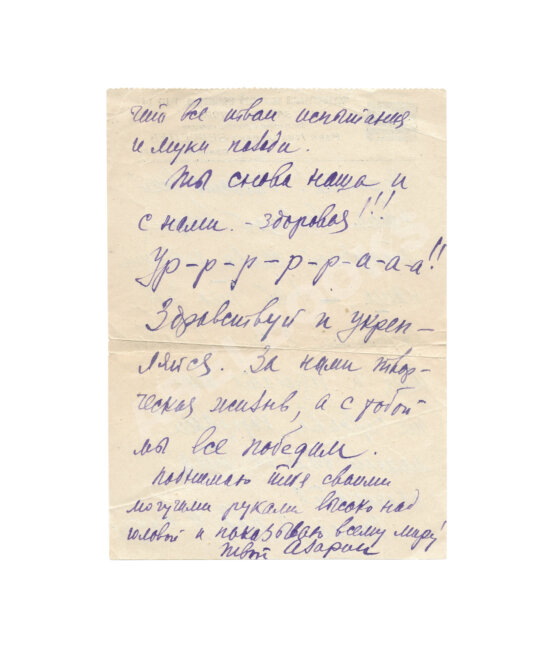 что все твои испытания
и муки позади.
Ты снова наша и
с нами. - здоровая!!!
Ур-р-р-р-р-а-а-а!!
Здравствуй и укреп-
ляйся. За нами твор-
ческая жизнь, а с тобой
мы все победим.
Поднимаю тебя своими
могучими руками высоко над
головой и показываю всему миру!
Твой Азарин